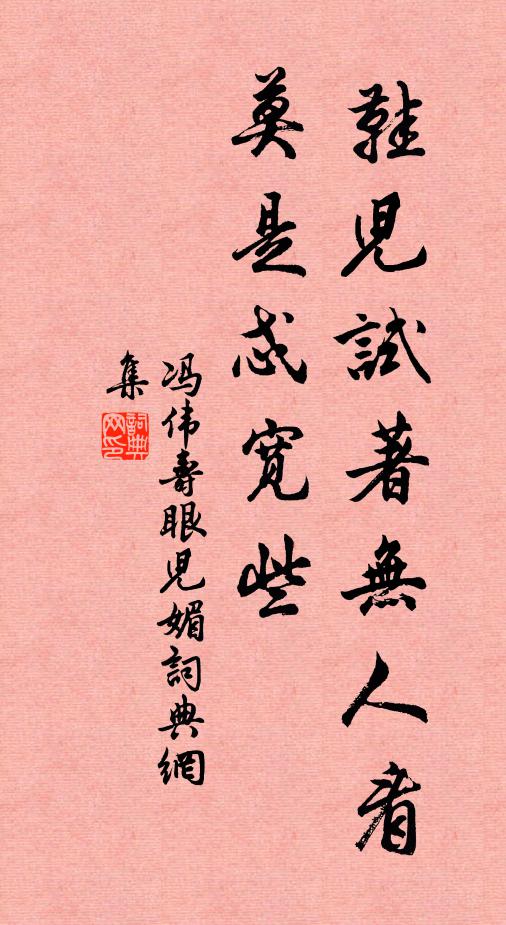 鞋兒試著無人看
莫是忒寬些
冯伟壽眼兒媚詞典網
集
詞典網印